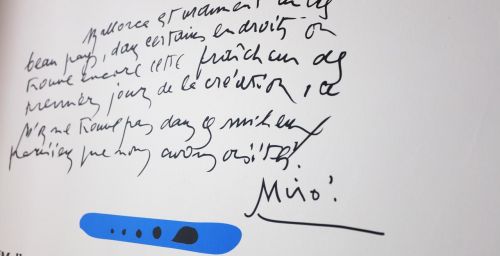 Mallorca est vraiment un
beau pays, dans certains endroits on
trouve encore cette fraîcheur des
premiers jours de la création, ce
ne trouve pas dans milieux
parisiens que nous avons visités.
Miró.